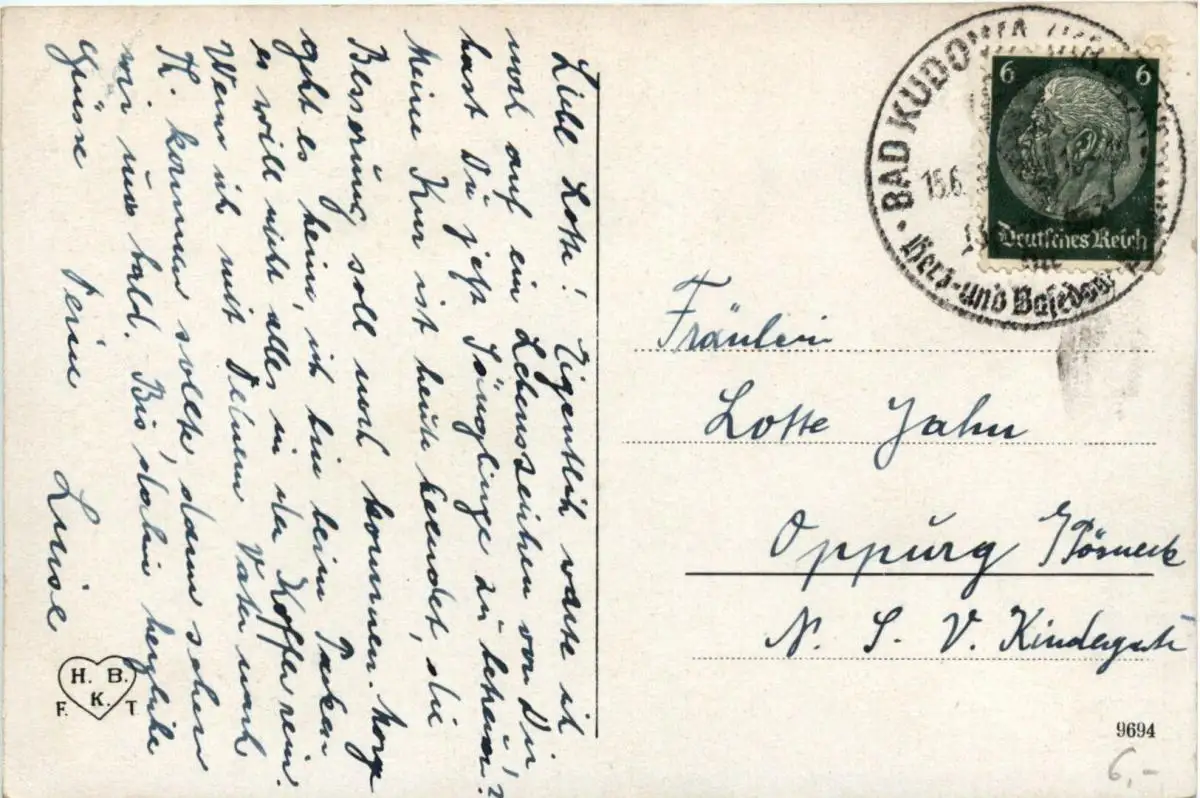 Liebe Lotte! Eigentlich warte ich
noch auf ein Lebenszeichen von Dir,
hast Du jetzt Säuglinge zu betreuen?
Meine Kur ist heute beendet, die
Besserung soll noch kommen. Morge
geht es heim, ich bin beim Packen
es will nicht alles in den Koffer rein.
Wenn ich mit Deinem Vater nach
K. kommen sollte, dann sehen
wir uns bald. Bis dahin herzliche
Grüsse Deine Luise
H. B.
K.
F. T.
BAD KUDOWA
15.6.
Herz- und Basedow
6 6
Deutsches Reich
Fräulein
Lotte Jahn
Oppurg Pösneck
N. S. V. Kindergart
9694
6,-